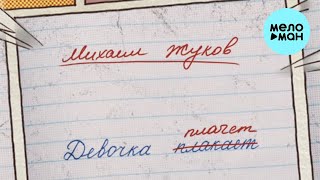 мело
ман
Михаил Жуков
плачет
Девочка плакает